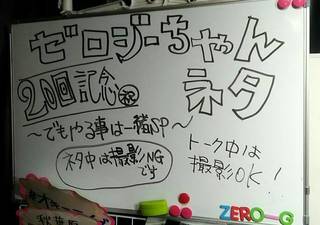 ゼロジーちゃん
20回記念㊗
ネタ
〜でもやる事は一緒SP〜
ネタ中は撮影NG
です
トーク中は
撮影OK!
ZERO-G